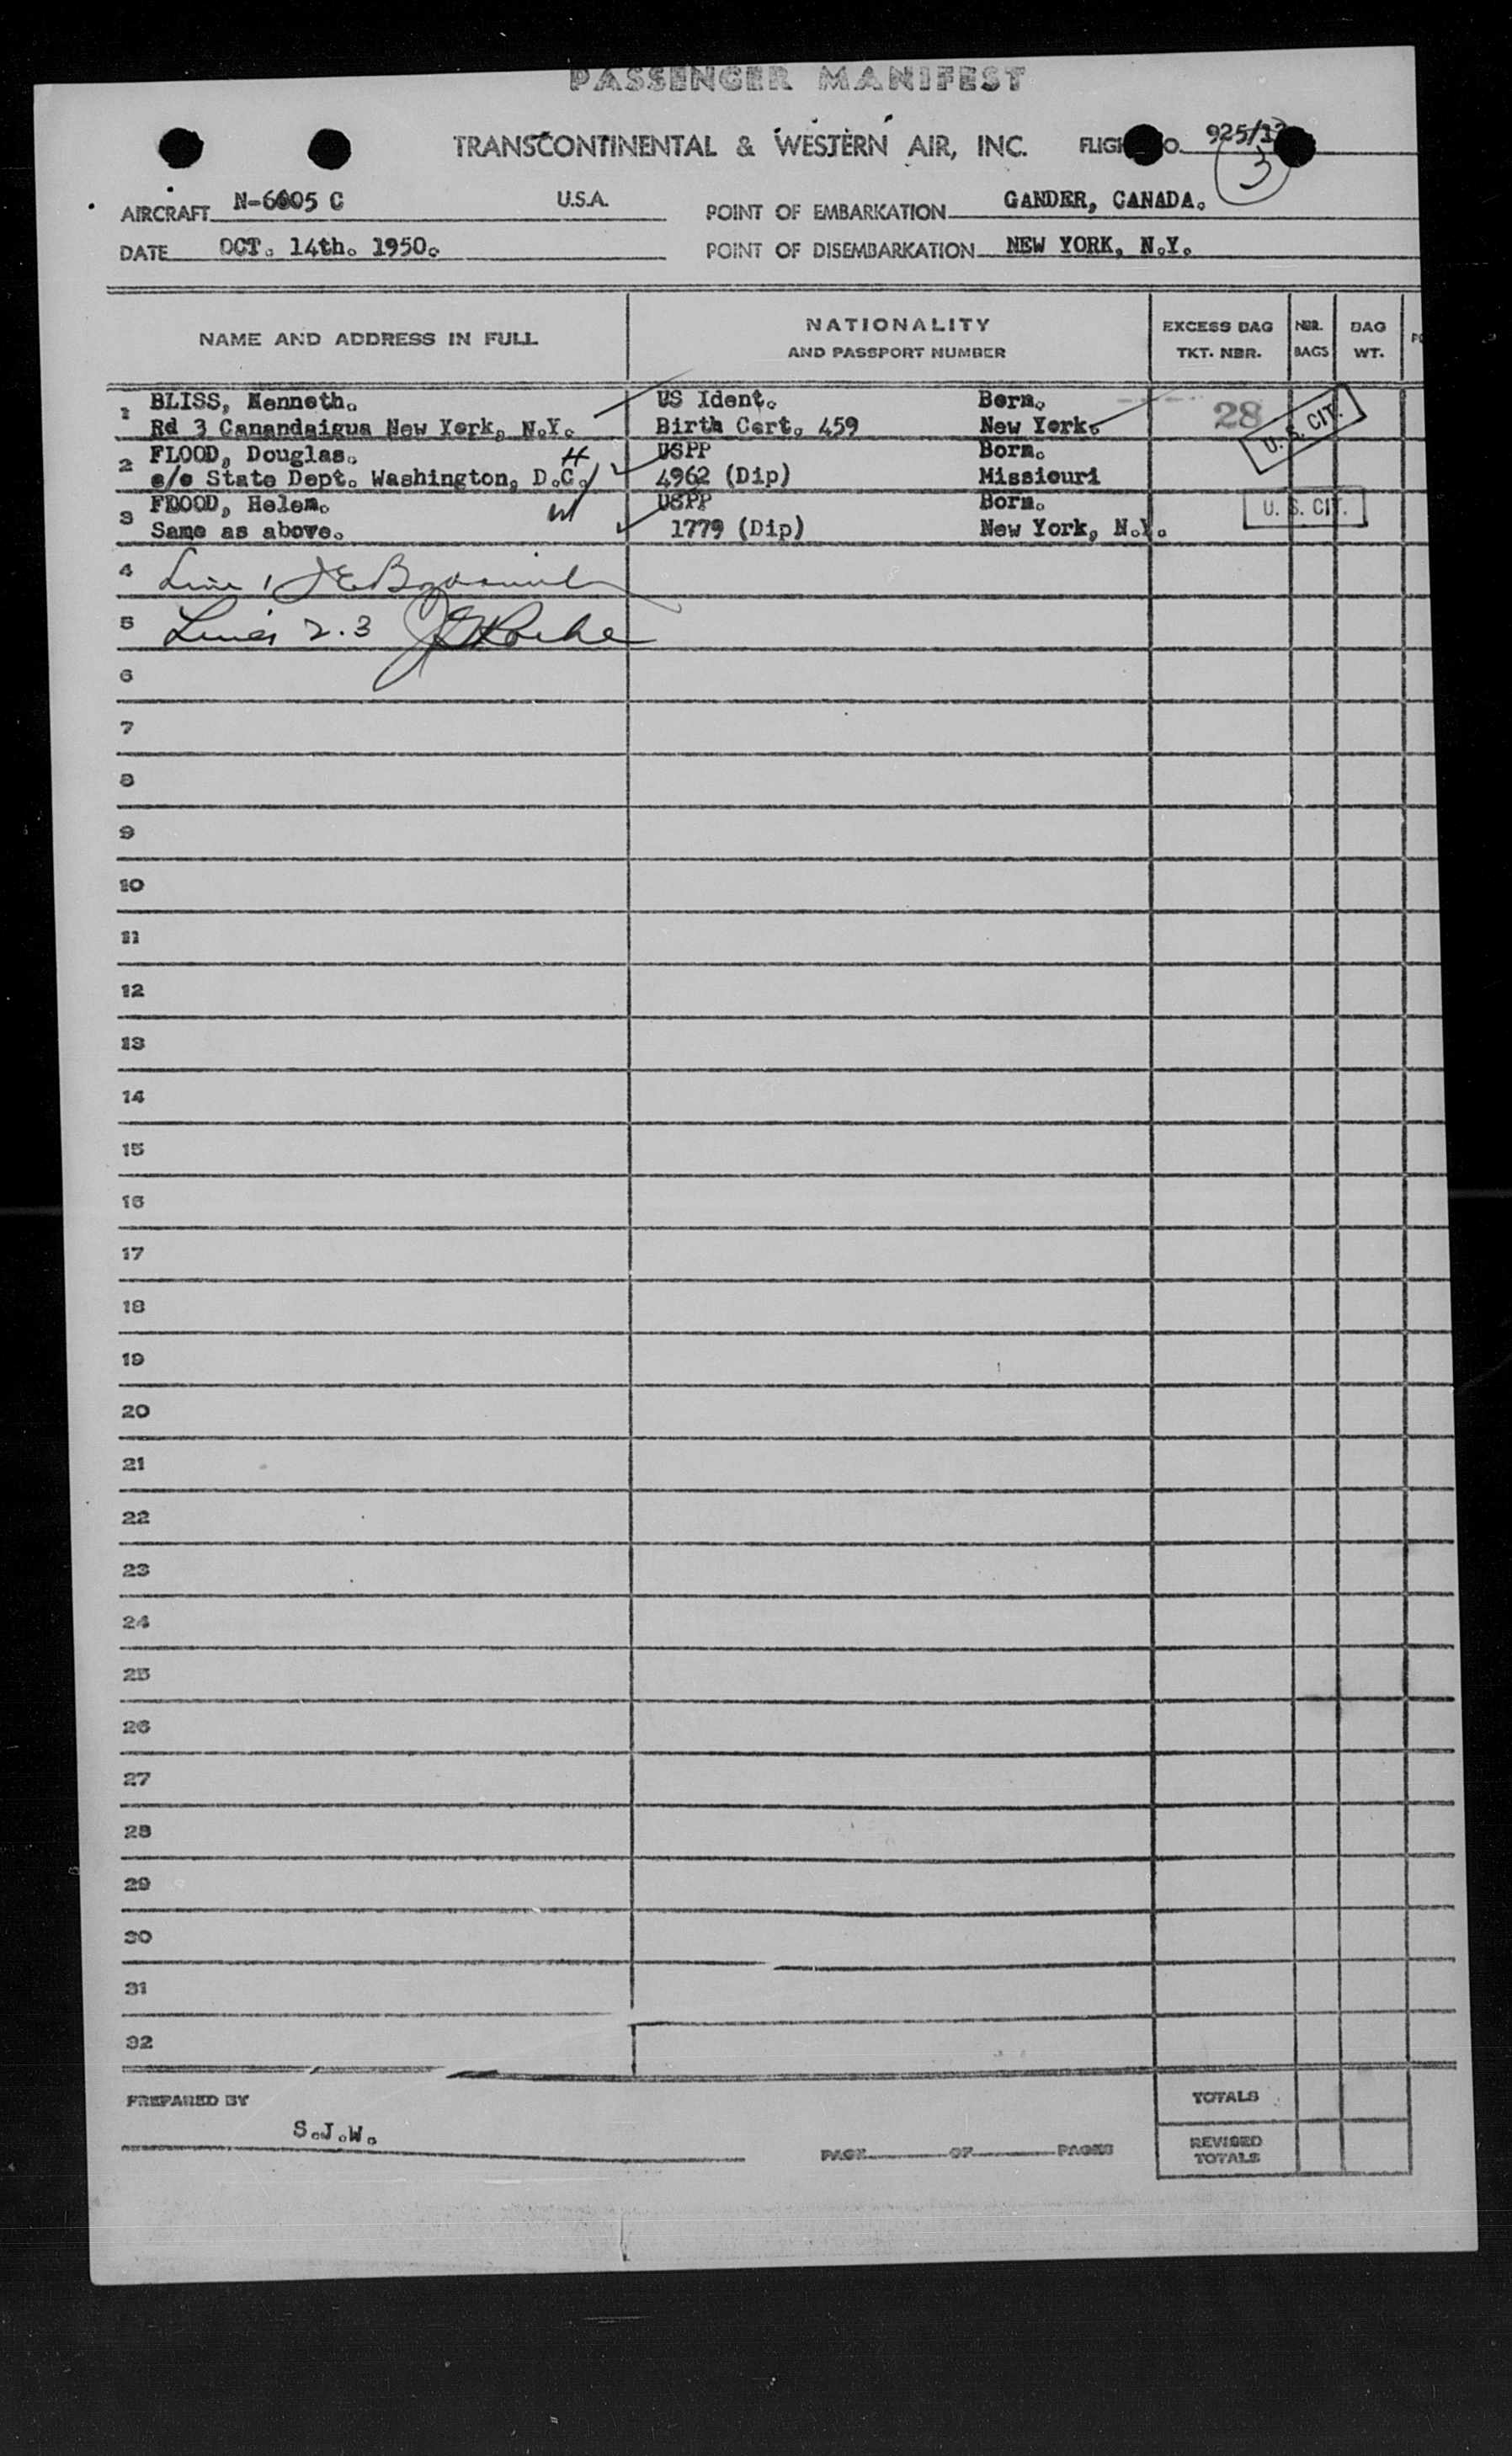 PASSENGER MANIFEST
TRANSCONTINENTAL & WESTERN AIR, INC. FLIGH O. 925/
3
AIRCRAFT N-6005 C U.S.A. POINT OF EMBARKATION GANDER, CANADA.
DATE OCT. 14th. 1950. POINT OF DISEMBARKATION NEW YORK, N.Y.
NAME AND ADDRESS IN FULL NATIONALITY AND PASSPORT NUMBER EXCESS BAG TKT. NBR. NBR. BAGS BAG WT.
1 BLISS, Kenneth. US Ident. Born. 28 U. S. CIT.
Rd 3 Canandaigua New York, N.Y. Birth Cert. 459 New York.
2 FLOOD, Douglas. H USPP Born.
c/o State Dept. Washington, D.C. 4962 (Dip) Missiouri
3 FLOOD, Helen. W USPP Born. U. S. CIT.
Same as above. 1779 (Dip) New York, N.Y.
4 Line 1
5 Lines 2.3
6
7
8
9
10
11
12
13
14
15
16
17
18
19
20
21
22
23
24
25
26
27
28
29
30
31
32
PREPARED BY S.J.W.
PAGE OF PAGES
TOTALS
REVISED TOTALS